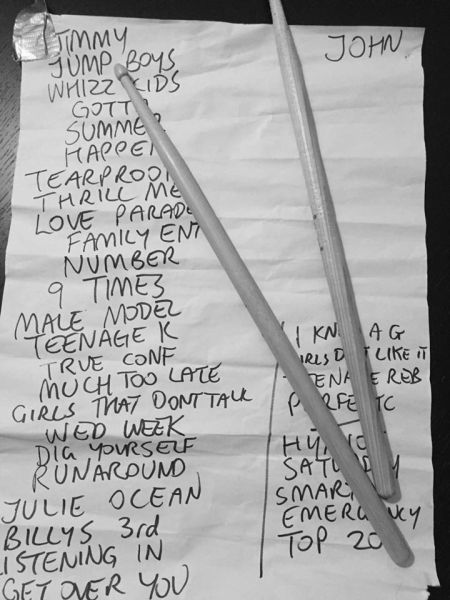 JIMMY
JUMP BOYS
WHIZZ KIDS
GOTTA
SUMMER
HAPPEN
TEARPROOF
THRILL ME
LOVE PARADE
FAMILY ENT
NUMBER
9 TIMES
MALE MODEL
TEENAGE K
TRUE CONF
MUCH TOO LATE
GIRLS THAT DONT TALK
WED WEEK
DIG YOURSELF
RUNAROUND
JULIE OCEAN
BILLYS 3rd
LISTENING IN
GET OVER YOU
JOHN
I KNOW A G
GIRLS DONT LIKE IT
TEENAGE REB
SATURDAY
SMART
EMERGENCY
TOP 20